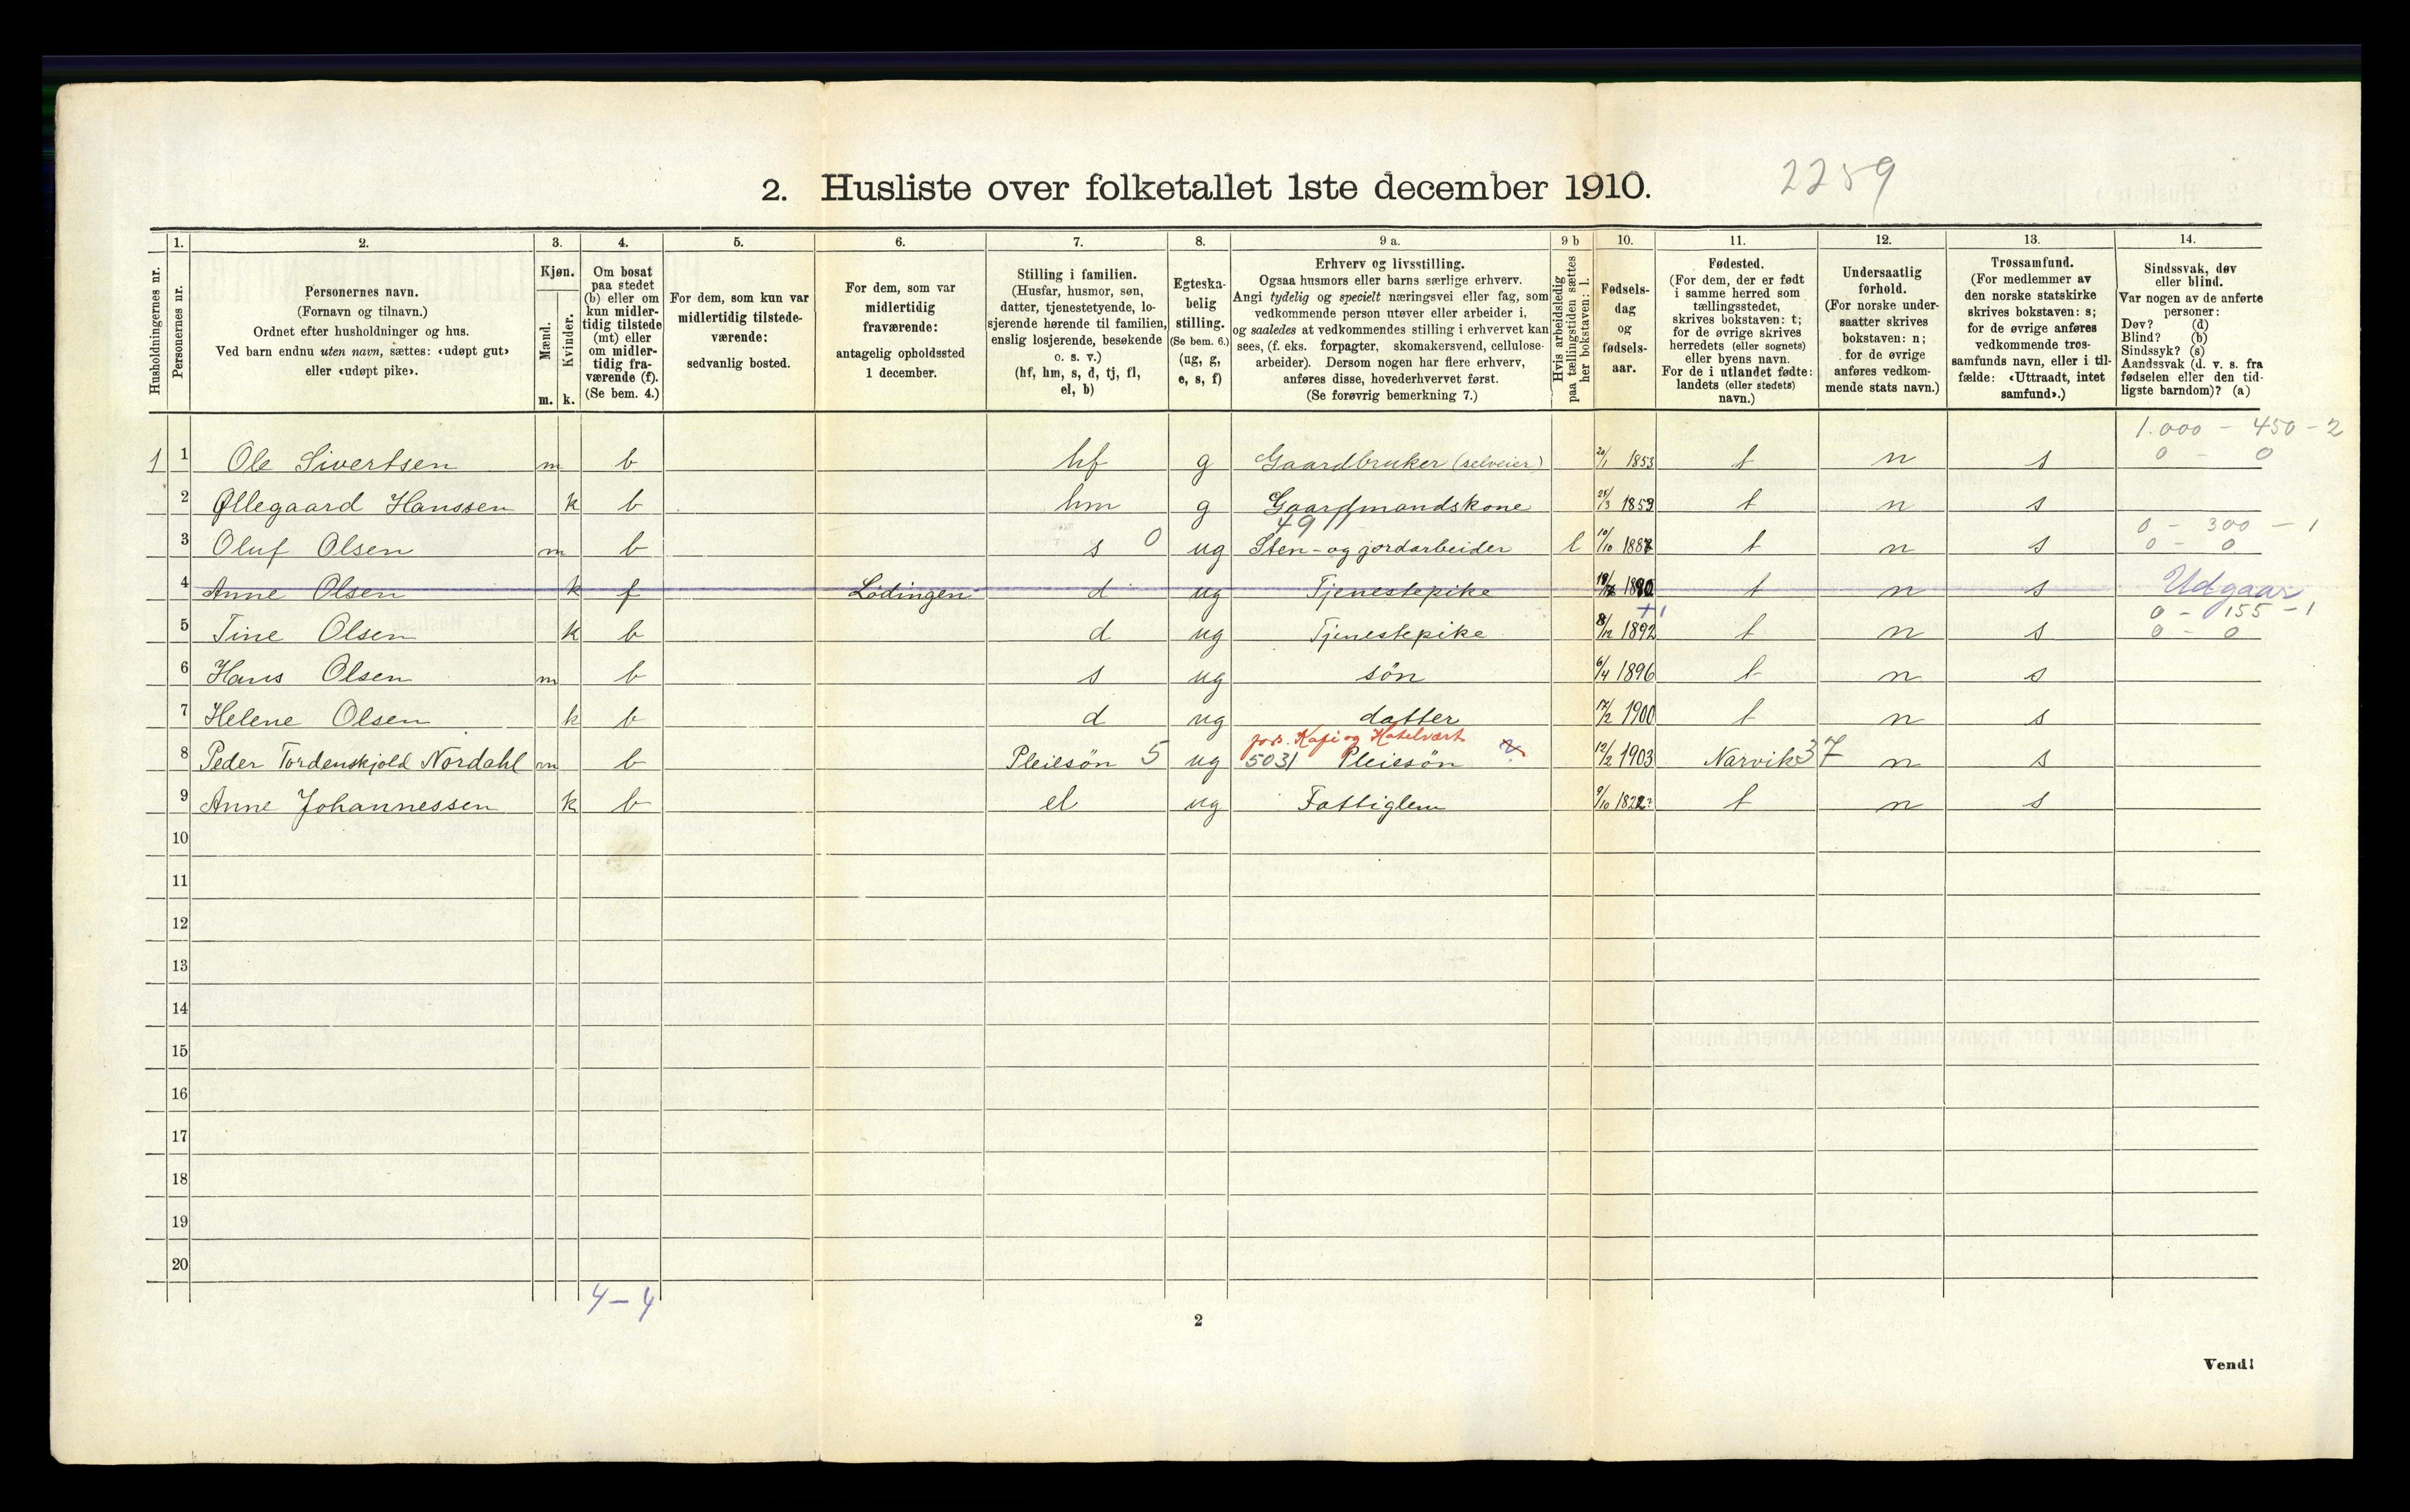 2. Husliste over folketallet 1ste december 1910.
2259
Husholdningernes nr.
1.
Personernes nr.
2.
Personernes navn.
(Fornavn og tilnavn.)
Ordnet efter husholdninger og hus.
Ved barn endnu uten navn, sættes: «udøpt gut»
eller «udøpt pike».
3.
Kjøn.
Mænd.
Kvinder.
m. k.
4.
Om bosat
paa stedet
(b) eller om
kun midler-
tidig tilstede
(mt) eller
om midler-
tidig fra-
værende (f).
(Se bem. 4.)
5.
For dem, som kun var
midlertidig tilstede-
værende:
sedvanlig bosted.
6.
For dem, som var
midlertidig
fraværende:
antagelig opholdssted
1 december.
7.
Stilling i familien.
(Husfar, husmor, søn,
datter, tjenestetyende, lo-
sjerende hørende til familien,
enslig losjerende, besøkende
o. s. v.)
(hf, hm, s, d, tj, fl,
el, b)
8.
Egteska-
belig
stilling.
(Se bem. 6.)
(ug, g,
e, s, f)
9 a.
Erhverv og livsstilling.
Ogsaa husmors eller barns særlige erhverv.
Angi tydelig og specielt næringsvei eller fag, som
vedkommende person utøver eller arbeider i,
og saaledes at vedkommendes stilling i erhvervet kan
sees, (f. eks. forpagter, skomakersvend, cellulose-
arbeider). Dersom nogen har flere erhverv,
anføres disse, hovederhvervet først.
(Se forøvrig bemerkning 7.)
9 b
Hvis arbeidsledig
paa tællingstiden sættes
her bokstaven: l.
10.
Fødsels-
dag
og
fødsels-
aar.
11.
Fødested.
(For dem, der er født
i samme herred som
tællingsstedet,
skrives bokstaven: t;
for de øvrige skrives
herredets (eller sognets)
eller byens navn.
For de i utlandet fødte:
landets (eller stedets)
navn.)
12.
Undersaatlig
forhold.
(For norske under-
saatter skrives
bokstaven: n;
for de øvrige
anføres vedkom-
mende stats navn.)
13.
Trossamfund.
(For medlemmer av
den norske statskirke
skrives bokstaven: s;
for de øvrige anføres
vedkommende tros-
samfunds navn, eller i til-
fælde: «Uttraadt, intet
samfund».)
14.
Sindssvak, døv
eller blind.
Var nogen av de anførte
personer:
Døv? (d)
Blind? (b)
Sindssyk? (s)
Aandssvak (d. v. s. fra
fødselen eller den tid-
ligste barndom)? (a)
1.000 - 450 - 2
1 1 Ole Sivertsen m b hf g Gaardbruker (selveier) 20/1 1853 t n s 0 - 0
2 Øllegaard Hanssen k b hm g Gaardmandskone 1859 t n s
49 0 - 300 - 1
3 Oluf Olsen m b s 0 ug Sten- og jordarbeider l 10/10 1887 t n s 0 - 0
4 Anne Olsen k f Lødingen d ug Tjenestepike 1890 t n s Udgaar
+1 0 - 155 - 1
5 Tine Olsen k b d ug Tjenestepike 8/12 1892 t n s 0 - 0
6 Hans Olsen m b s ug søn 6/4 1896 t n s
7 Helene Olsen k b d ug datter 17/2 1900 t n s
Kafi og Hotelvært
8 Peder Tordenskjold Nordahl m b Pleiesøn 5 ug 5031 Pleiesøn 12/2 1903 Narvik 37 n s
9 Anne Johannessen k b el ug Fattiglem 9/10 1822? t n s
10
11
12
13
14
15
16
17
18
19
20
4 - 4
2
Vend!